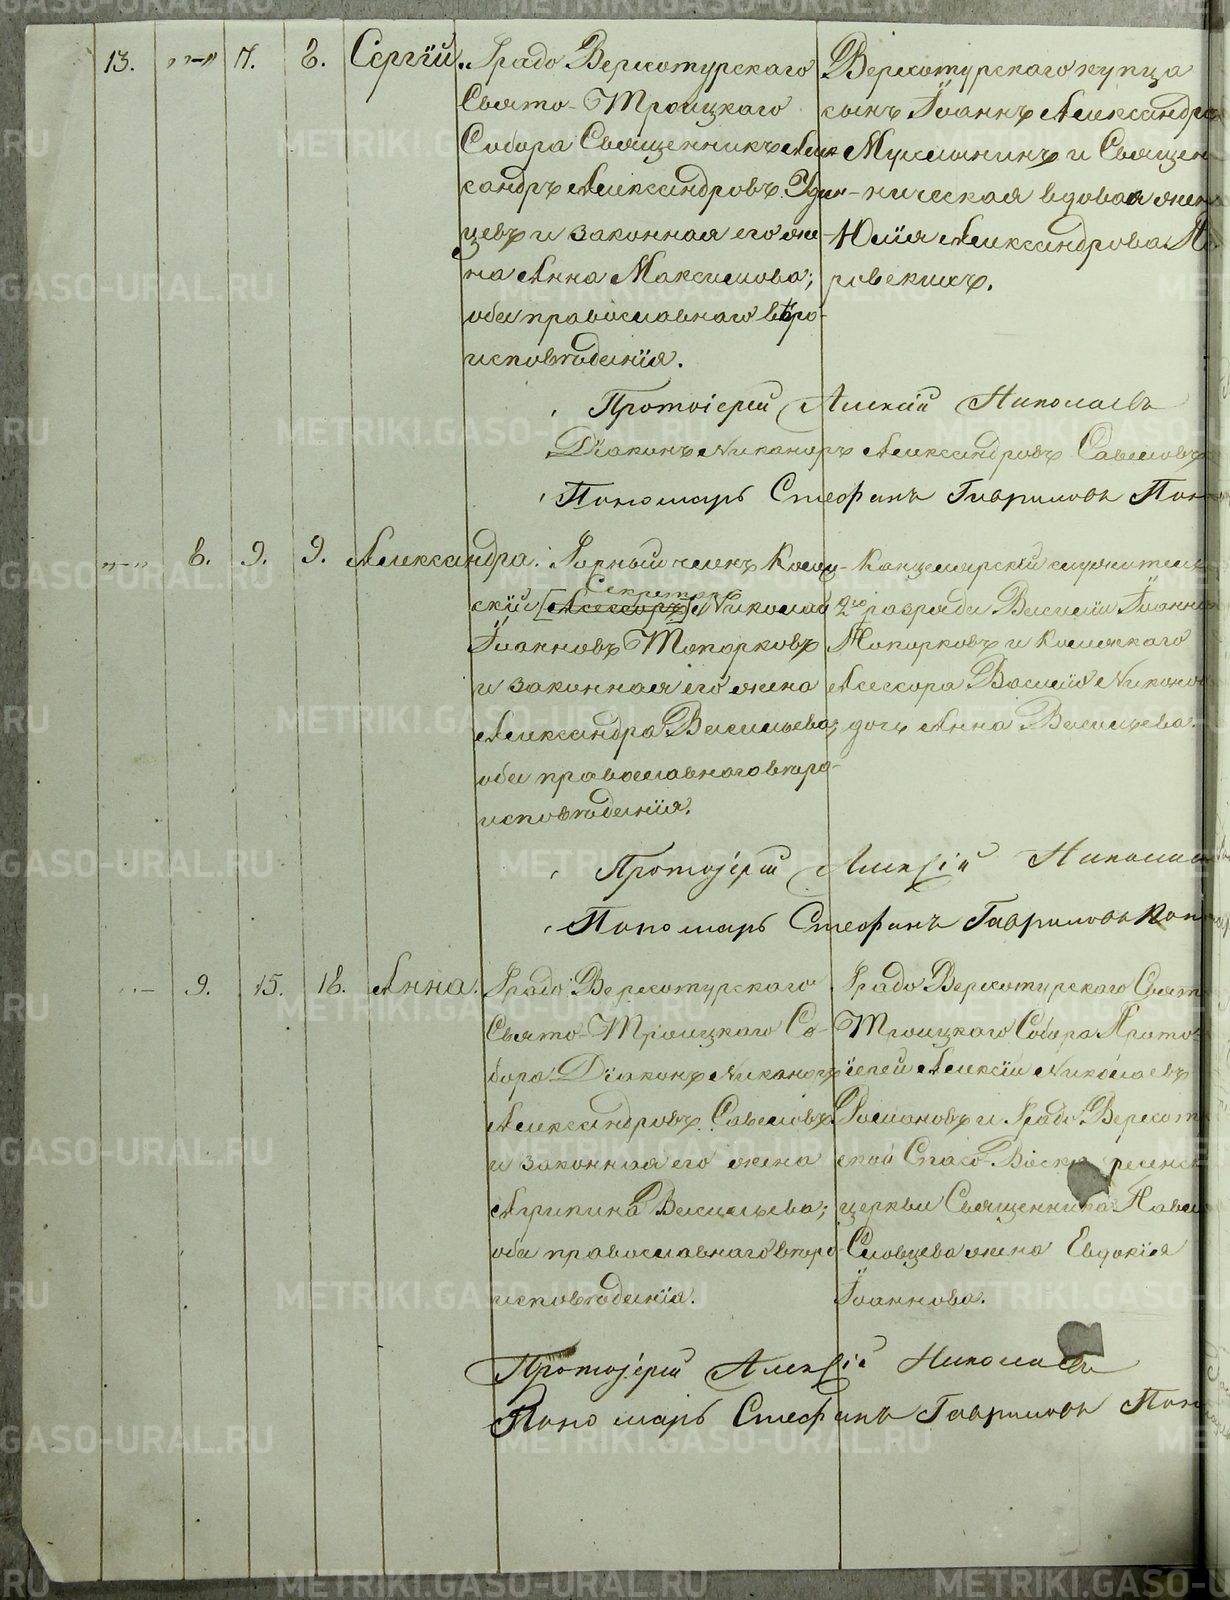 13. „—„ 7. 8. Сергій. Градо Верхотурскаго
Свято-Троицкаго
Собора Священникъ Алек
сандръ Александровъ Удин-
цевъ и законная его же-
на Анна Максимова;
оба православнаго вѣро-
исповѣданія.
Верхотурскаго купца
сынъ Іоаннъ Александро
Мухлынинъ и Священ
ническая вдовая жен
Юлія Александрова
Протоіерей Алексій Николаевъ
Діаконъ Никаноръ Александровъ Савеловъ
Пономарь Стефанъ Гавриловъ Поп
„—„ 8. 9. 9. Александра. Горный членъ Колле-
скій [Асессоръ] Николай
Секретарь
Іоанновъ Топорковъ
и законная его жена
Александра Васильева;
оба православнаго вѣро-
исповѣданія.
Канцелярскій служитель
2го разряда Василій Іоанно
Топорковъ и Коллежскаго
Асессора Василія Никоно
дочь Анна Васильева.
Протоіерей Алексій Николаев
Пономарь Стефанъ Гавриловъ Поп
„— 9. 15. 18. Анна. Градо Верхотурскаго
Свято-Троицкаго Со-
бора Діаконъ Никаноръ
Александровъ Савеловъ
и законная его жена
Агрипина Васильева;
оба православнаго вѣро-
исповѣданія.
Градо Верхотурскаго Свят
Троицкаго Собора Прото-
іерей Алексій Николаевъ
Романовъ и Градо Верхот
ской Спасо-Воскресенск
церкви Священника Павл
Словцева жена Евдокія
Іоаннова.
Протоіерей Алексій Николаевъ
Пономарь Стефанъ Гавриловъ Поп